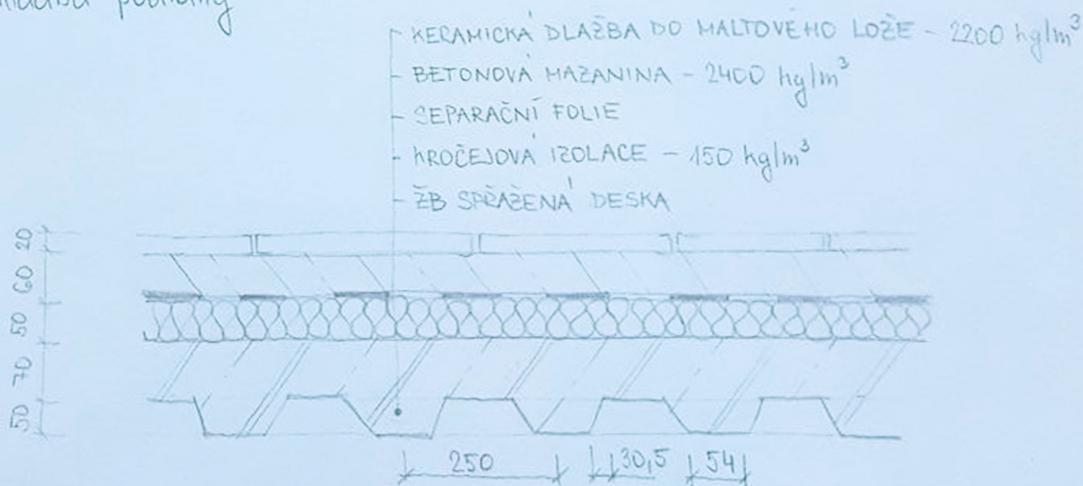 podlahy
KERAMICKÁ DLAŽBA DO MALTOVÉHO LOŽE - 2200 kg/m³
BETONOVÁ MAZANINA - 2400 kg/m³
SEPARAČNÍ FOLIE
KROČEJOVÁ IZOLACE - 150 kg/m³
ŽB SPŘAŽENÁ DESKA
20
60
50
70
50
250 30,5 54